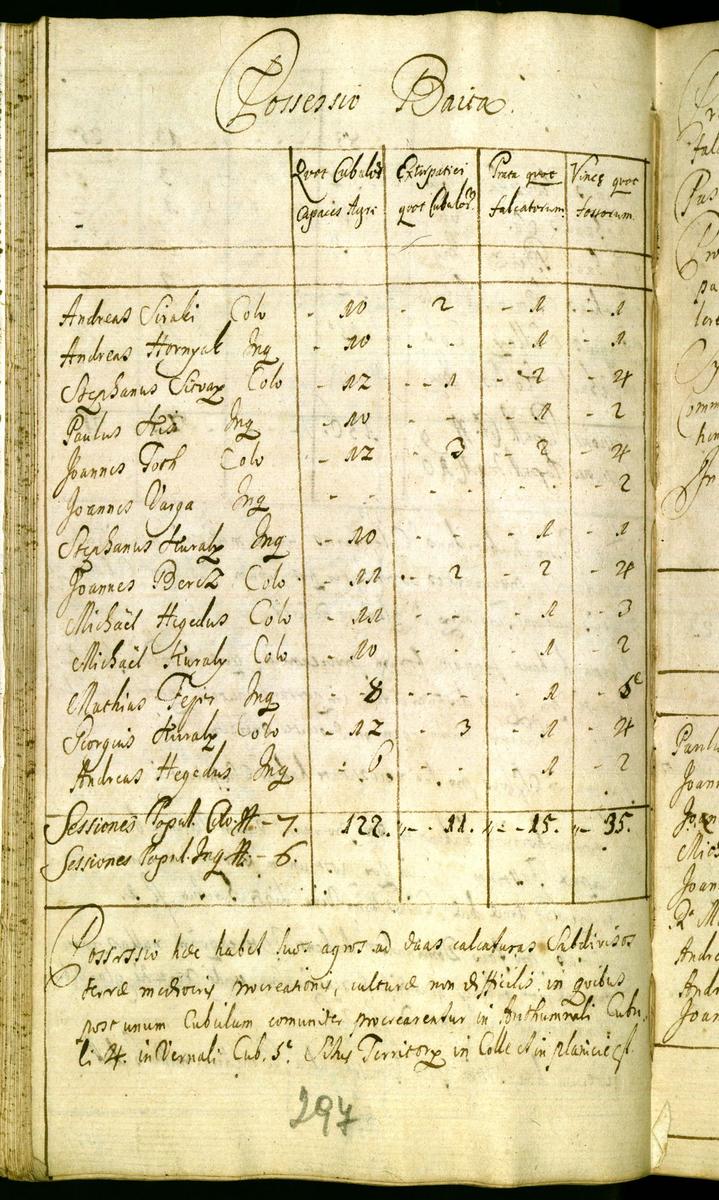 Possessio Baita.
Quot Cubulor̃ Extirpatici Prata quot Vineę quot
Capaces Agri quot Cubulor̃. falcatorum. fossorum.
Andreas Siraki Colo - 10 - 2 - 1 - 1
Andreas Hornyak Inq - 10 - - - 1 - 1
Stephanus Colo - 12 - - 1 - 2 - 4
Paulus Inq - 10 - - - 1 - 2
Joannes Toth Colo - 12 3 - 2 - 4
Joannes Varga Inq - - - - - - 2
Stephanus Kuraly Inq - 10 - - - 1 - 1
Joannes Berez Colo - 11 - 2 - 2 - 4
Michaël Hegedus Colo - 11 - - - 1 - 3
Michaël Kuraly Colo - 10 - - 1 - 2
Mathias Fejer Inq - 8 - - - 1 - 5
Georgius Kuraly Colo - 12 - 3 - 1 - 4
Andreas Hegedus Inq - 6 - - 1 - 2
Sessiones Popul. Colo. ff. - 7. 122. - 11. - 15. - 35.
Sessiones Popul. Inq ff. - 6.
Possessio hæc habet suos agros ad duas calcaturas subdivisos
terræ mediocris procreationis, culturæ non difficilis, in quibus
post unum Cubulum comuniter procrearentur in Authumnali Cubu-
li 4. in Vernali Cub. 5. Situs Territory in Colle et in planicie est.
297